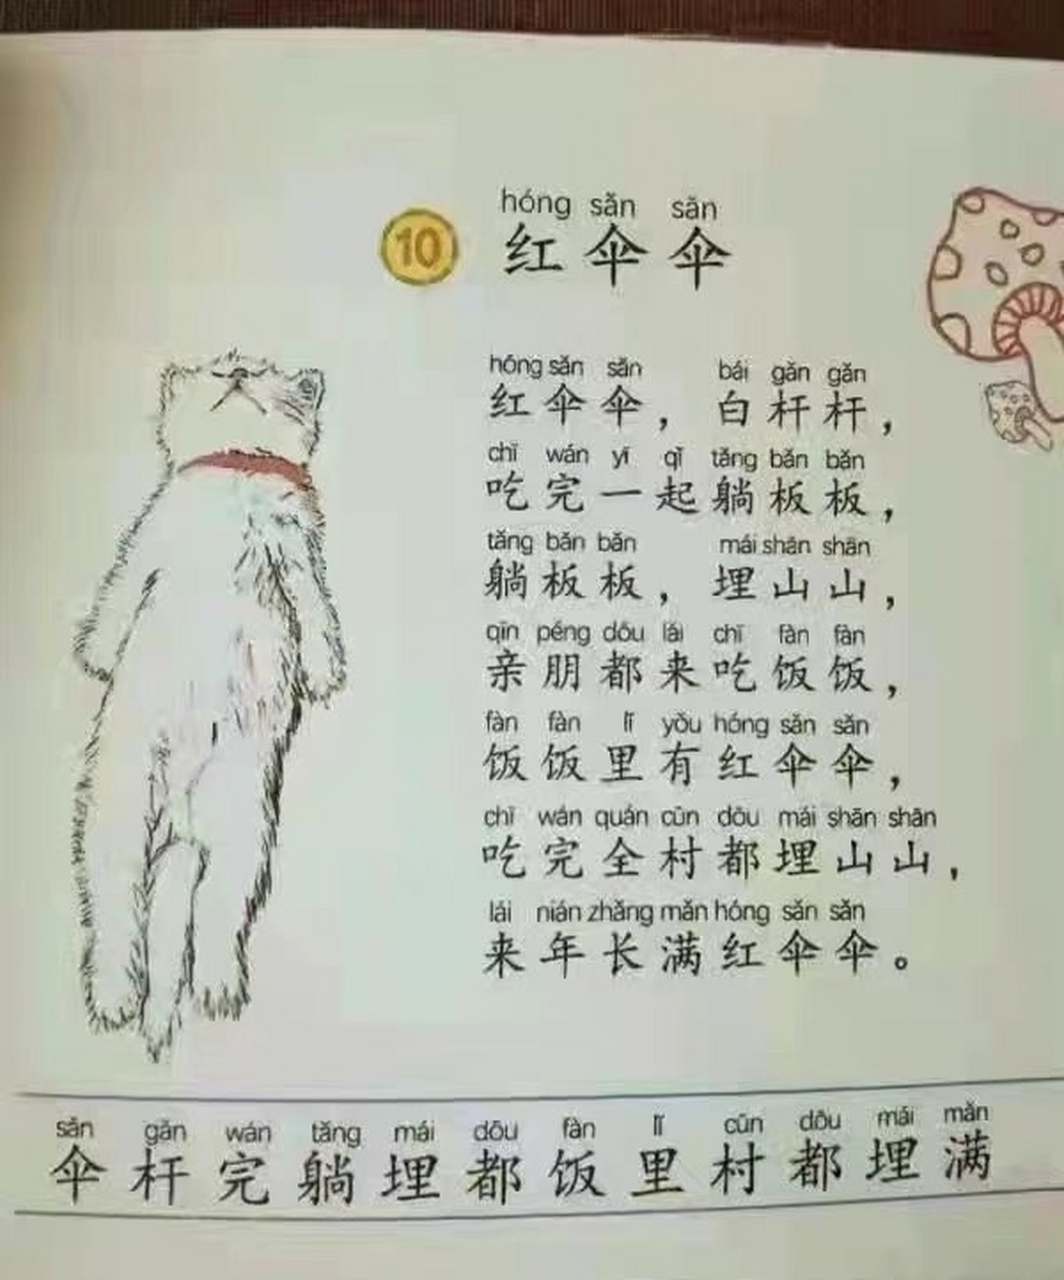 hóng sǎn sǎn
10 红伞伞
hóng sǎn sǎn bái gǎn gǎn
红伞伞，白杆杆，
chī wán yī qǐ tǎng bǎn bǎn
吃完一起躺板板，
tǎng bǎn bǎn mái shān shān
躺板板，埋山山，
qīn péng dōu lái chī fàn fàn
亲朋都来吃饭饭，
fàn fàn lǐ yǒu hóng sǎn sǎn
饭饭里有红伞伞，
chī wán quán cūn dōu mái shān shān
吃完全村都埋山山，
lái nián zhǎng mǎn hóng sǎn sǎn
来年长满红伞伞。
sǎn gǎn wán tǎng mái dōu fàn lǐ cūn dōu mái mǎn
伞杆完躺埋都饭里村都埋满